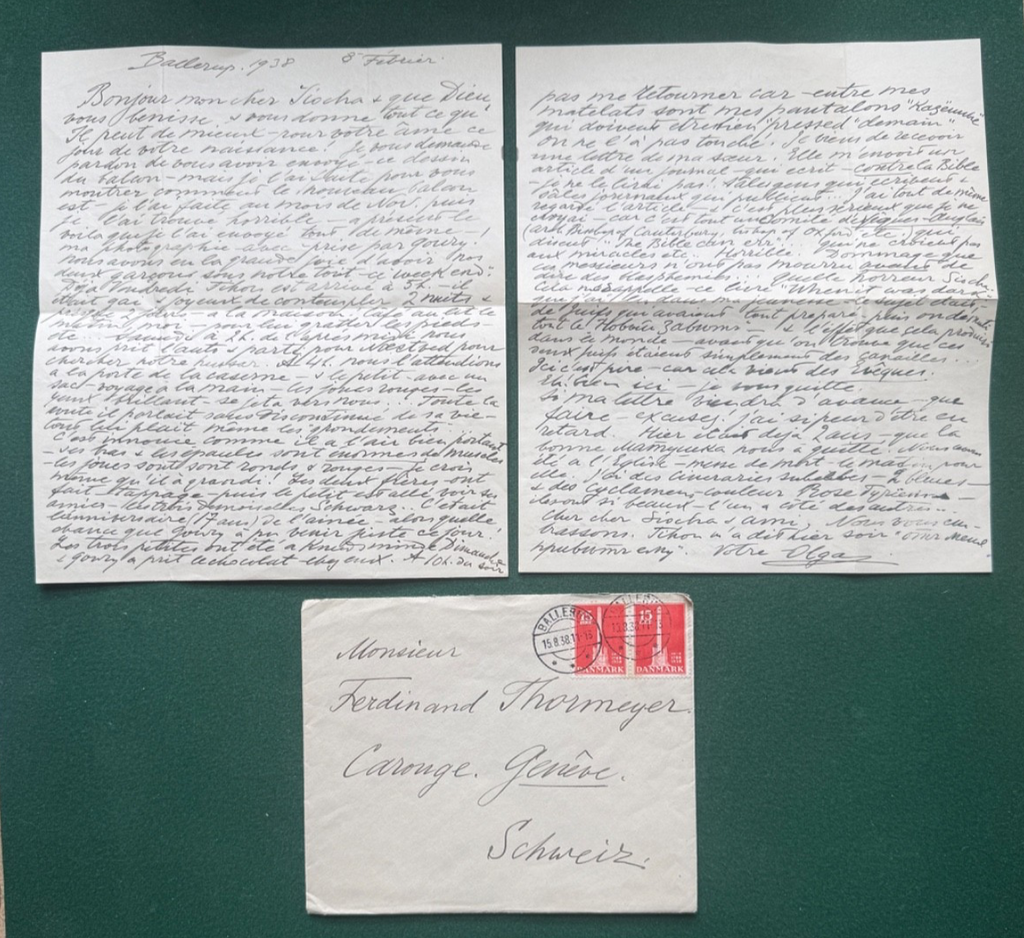 Ballerup. 1938 8 Février.
Bonjour mon cher Siocha & que Dieu
vous bénisse & vous donne tout ce qu'
Il peut de mieux pour votre âme ce
jour de votre naissance! Je vous demande
pardon de vous avoir envoyé ce dessin
du balcon mais je l'ai faite pour vous
montrer comment le nouveau balcon
est je l'ai faite au mois de Nov. puis
je l'ai trouvé horrible à présent le
voilà que je l'ai envoyé tout de même
ma photographie avec prise par Goury.
nous avons eu la grande joie d'avoir nos
deux garçons sous notre toit ce "week end"
Déjà Vendredi Tihon est arrivé à 5h. il
était gai & joyeux de contempler 2 nuits &
2 à la maison. Café au lit le
matin, moi pour lui gratter les pieds
Samedi à 2h. de l'après midi nous
avons pris l'auto & party pour Næstved pour
chercher notre hussar. A 4h. nous l'attendions
à la porte de la caserne & le petit avec un
sac voyage à la main les joues rouges les
yeux brillant se jeta vers nous!.. Toute la
route il parlait sans discontinué de sa vie
tout lui plait même les grondements
C'est innouie comme il a l'air bien portant
ses bras & les épaules sont enormes de muscles
les joues sont ronds & rouges je crois
même qu'il a grandi! Les deux frères ont
fait puis le petit est allé voir ses
amies les trois demoiselles Schwarz.. C'était
l'anniversaire (17 ans) de l'année alors quelle
chance que Goury a pu venir juste ce jour!
Les trois petites ont été à Knudsminde Dimanche
& Goury a prit le chocolat chez eux. A 10h. du soir
pas me retourner car entre mes
matelats sont mes pantalons
qui doivent être bien "pressed" demain
on ne l'a pas touché. Je viens de recevoir
une lettre de ma sœur. Elle m'envoit un
article d'un journal qui ecrit contre la Bible
je ne le lirai pas. Sales gens qui
sales journeaux qui publient.. J'ai tout de même
regardé l'article c'est plus sérieux que je ne
croyai car c'est tout un Comité de Vêques Anglais
(arch Bishop of Canterbury, bishop of Oxford etc.) qui
discut "The Bible can err".. qui ne croient pas
aux miracles etc. Horrible. Dommage que
ces messieurs n'ont pas mourru avant de
dire des blasphemies. Quelle horreur Siocha
Cela me rappelle ce livre "When it was dark"
que j'ai lu dans ma jeunesse le sujet était
de juifs qui avaient tout preparé
tout le & l'effet que cela produisit
dans le monde avant qu'on trouve que ces
deux juifs étaient simplement des canailles.
Ici c'est pire car cela vient des Evêques.
Eh bien ici je vous quitte.
Si ma lettre viendra d'avance que
faire excusez j'ai si peur d'être en
retard. Hier était déjà 2 ans que la
bonne nous a quitté. Nous avons
été à l'Eglise messe de mort le matin pour
elle. J'ai des cineraries bleues
& des Cyclamen couleur Rose
devant si beaux l'un a côté des autres..
Cher cher Siocha & ami, Nous vous em-
brassons. Tihon m'a dit hier soir
Votre Olga
Monsieur
Ferdinand Thormeyer.
Carouge. Genêve.
Schweiz.
BALLERUP
15.8.38.11-15
BALLERUP
15
15
DANMARK
DANMARK